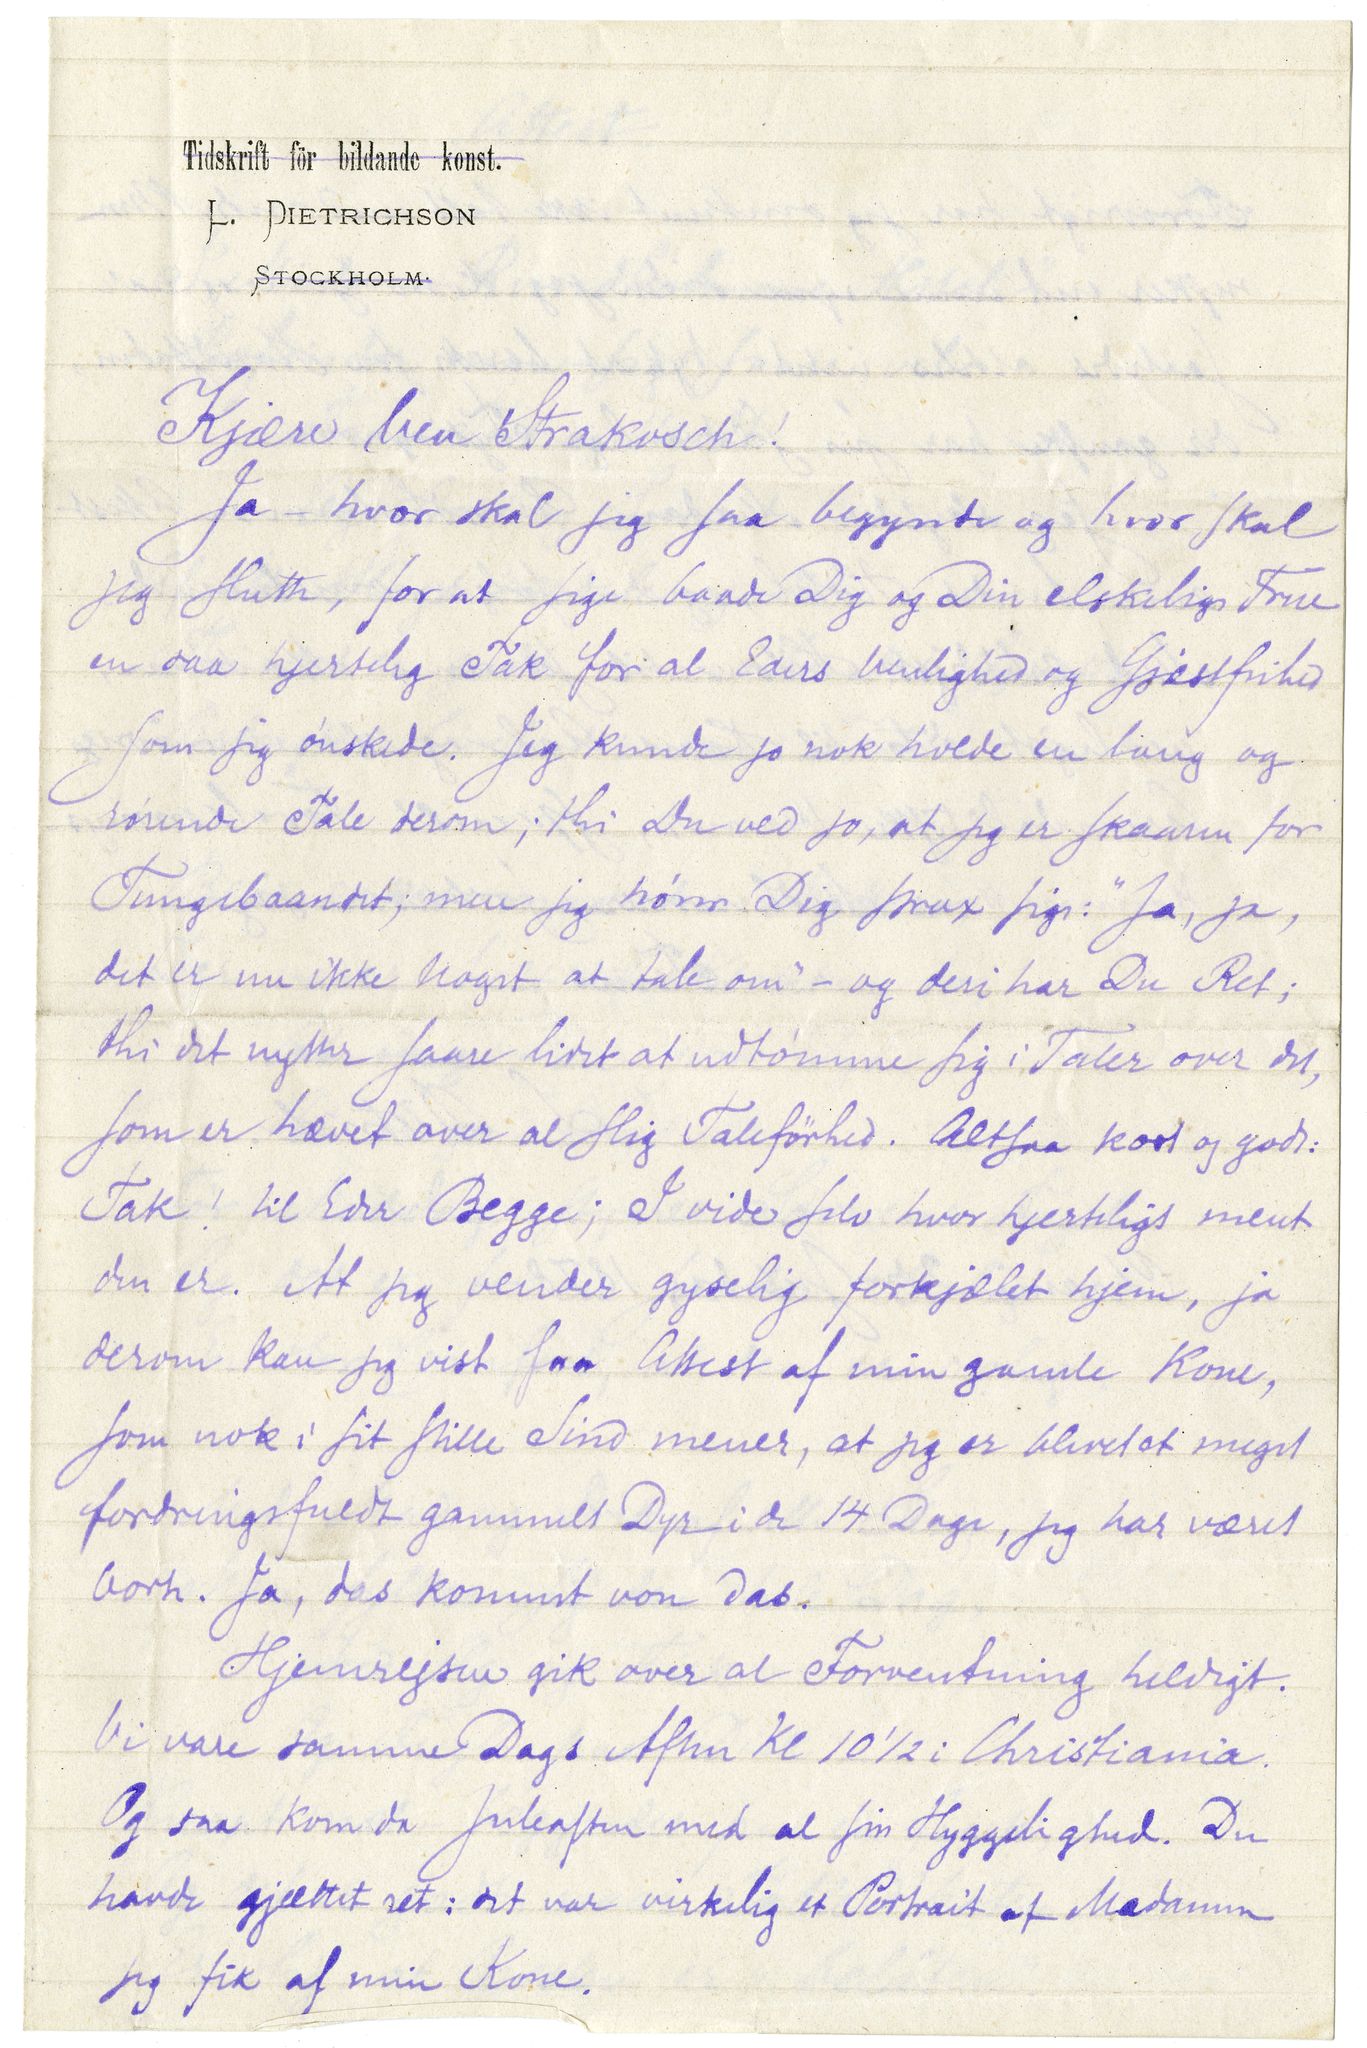 Tidskrift för bildande konst.
L. DIETRICHSON
STOCKHOLM.
Kjære Ven Strakosch!
Ja – hvor skal jeg saa begynde og hvor skal
jeg slutte, for at sige baade Dig og Din elskelige Frue
en saa hjertelig Tak for al Eders Venlighed og Gjæstfrihed
som jeg ønskede. Jeg kunde jo nok holde en lang og
rørende Tale derom; thi Du ved jo, at jeg er skaaren for
Tungebaandet; men jeg hører Dig strax sige: "Ja, ja,
det er nu ikke Noget at tale om" – og deri har Du Ret;
thi det nytter saare lidet at udtømme sig i Taler over det,
som er hævet over al slig Taleførhed. Altsaa kort og godt:
Tak! til Eder Begge; I vide selv hvor hjerteligt ment
den er. At jeg vender gyselig forkjælet hjem, ja
derom kan jeg vist faa Attest af min gamle Kone,
som nok i sit stille Sind mener, at jeg er blevet et meget
fordringsfuldt gammelt Dyr i de 14 Dage, jeg har været
borte. Ja, das kommt von das.
Hjemrejsen gik over al Forventning heldigt.
Vi vare samme Dags Aften Kl 10 1/2 i Christiania.
Og saa kom da Juleaften med al sin Hyggelighed. Du
havde gjættet ret: det var virkelig et Portrait af Madammen
jeg fik af min Kone.